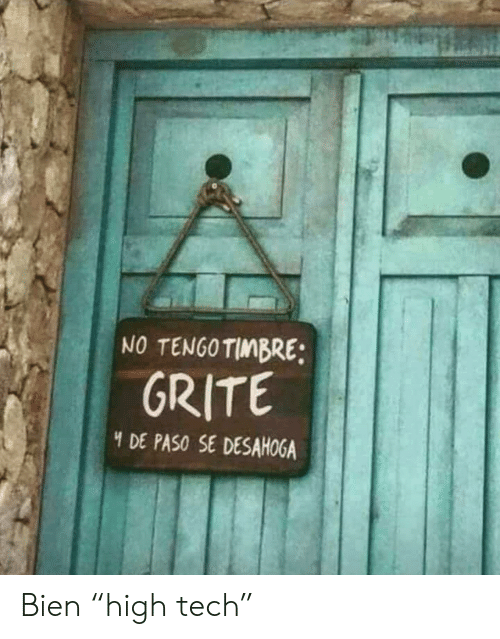 NO TENGO TIMBRE:
GRITE
Y DE PASO SE DESAHOGA
Bien “high tech”